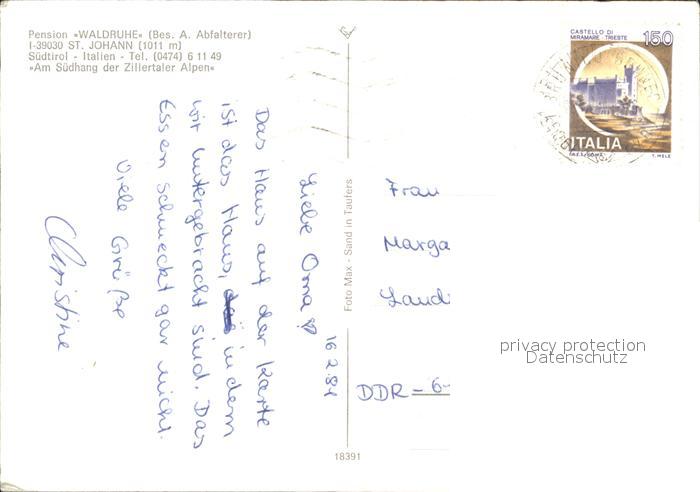 Pension »WALDRUHE« (Bes. A. Abfalterer)
I-39030 ST. JOHANN (1011 m)
Südtirol - Italien - Tel. (0474) 6 11 49
»Am Südhang der Zillertaler Alpen«
16.2.84
Liebe Oma
Das Haus auf der Karte
ist das Haus, in dem
wir untergebracht sind. Das
Essen schmeckt gar nicht.
Viele Grüße
Christine
Foto Max - Sand in Taufers
18391
CASTELLO DI
MIRAMARE · TRIESTE
150
ITALIA
I.P.Z.S. ROMA
T. MELE
Frau
Marga
Laud
DDR - 6
privacy protection
Datenschutz